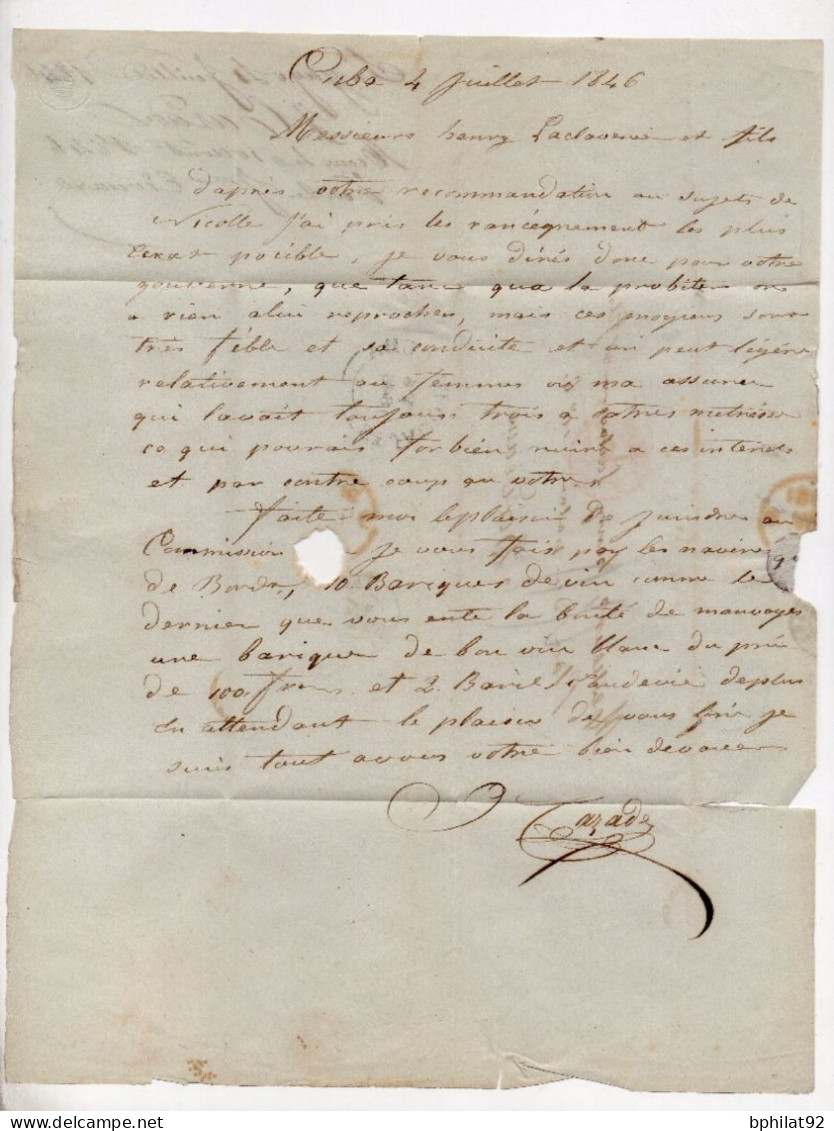 Cuba 4 Juillet 1846
Messieurs henry Laclaverie et fils
d'aprés votre recommandation au sujets de
Nicolle J'ai pris les rancégnement les plus
Exact pocible, je vous dirés donc pour votre
gouverne, que tant qua la probiter on
a rien alui reprocher, mais ces moyens sont
trés féble et sa conduite et un peut légére
relativement au femmes on ma assurer
qui lavait toujours trois a catres metrésse
ce qui pourais forbién nuire a ces interets
et par contre coup au votres
faite moi leplaisir de juindre au
Commission je vous fais par les navires
de Bordx, 10 Bariques de vin comme le
dernier que vous ente la bonté de mauvoyer
une barique de bon vin blanc du prix
de 100 frcs et 2 Baril d'audevie deplus
En attendant le plaisir de vous liré je
suis tout avous votre bién devouer
Cazade
bphilat92